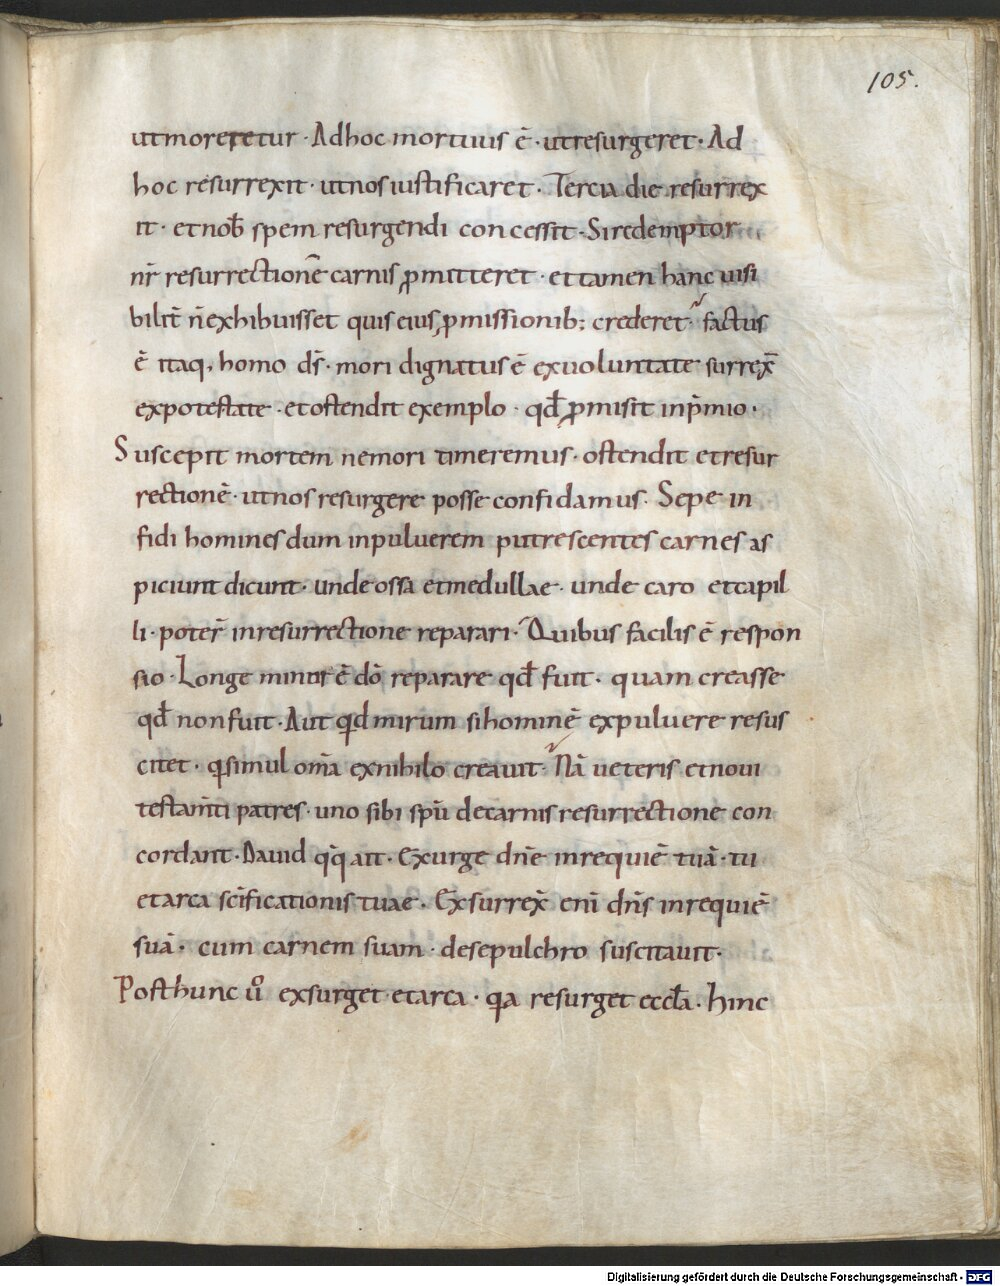 105.
ut moreretur · Ad hoc mortuus ē · ut resurgeret · Ad
hoc resurrexit · ut nos iustificaret · Tercia die resurrex
it · et nob̄ spem resurgendi concessit · Si redemptor
nr̄ resurrectionē carnis ꝓmitteret · et tamen hanc uisi
bilit̄ n̄ exhibuisset quis eius ꝓmissionib; crederet · factus
ē itaq, homo ds̄ · mori dignatus ē ex uoluntate surrex̄
ex potestate · et ostendit exemplo · qd̄ ꝓmisit in p̄mio ·
Suscepit mortem ne mori timeremus · ostendit et resur
rectionē · ut nos resurgere posse confidamus · Sepe in
fidi homines dum in puluerem putrescentes carnes as
piciunt dicunt · unde ossa et medullae · unde caro et capil
li · poter̄ in resurrectione reparari · Quibus facilis ē respon
sio · Longe minus ē dō reparare qd̄ fuit · quam creasse
qd̄ non fuit · Aut qd mirum si hominē ex puluere resus
citet · q simul om̄a ex nihilo creauit · Nā ueteris et noui
testam̄ti patres · uno sibi spū de carnis resurrectione con
cordant · Dauid q̄q ait · Exurge dn̄e in requiē tuā · tu
et arca sc̄ificationis tuae · Exsurrex̄ eni dn̄s in requiē
suā · cum carnem suam · de sepulchro suscitauit ·
Post hunc uº exsurget et arca · qa resurget eccl̄a · hinc
Digitalisierung gefördert durch die Deutsche Forschungsgemeinschaft - DFG